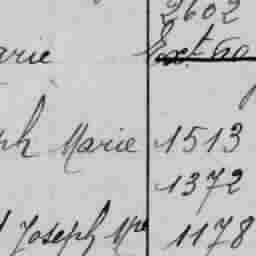 2602
arie Ext 60
ph Marie 1513
1372
Joseph Mie 1178